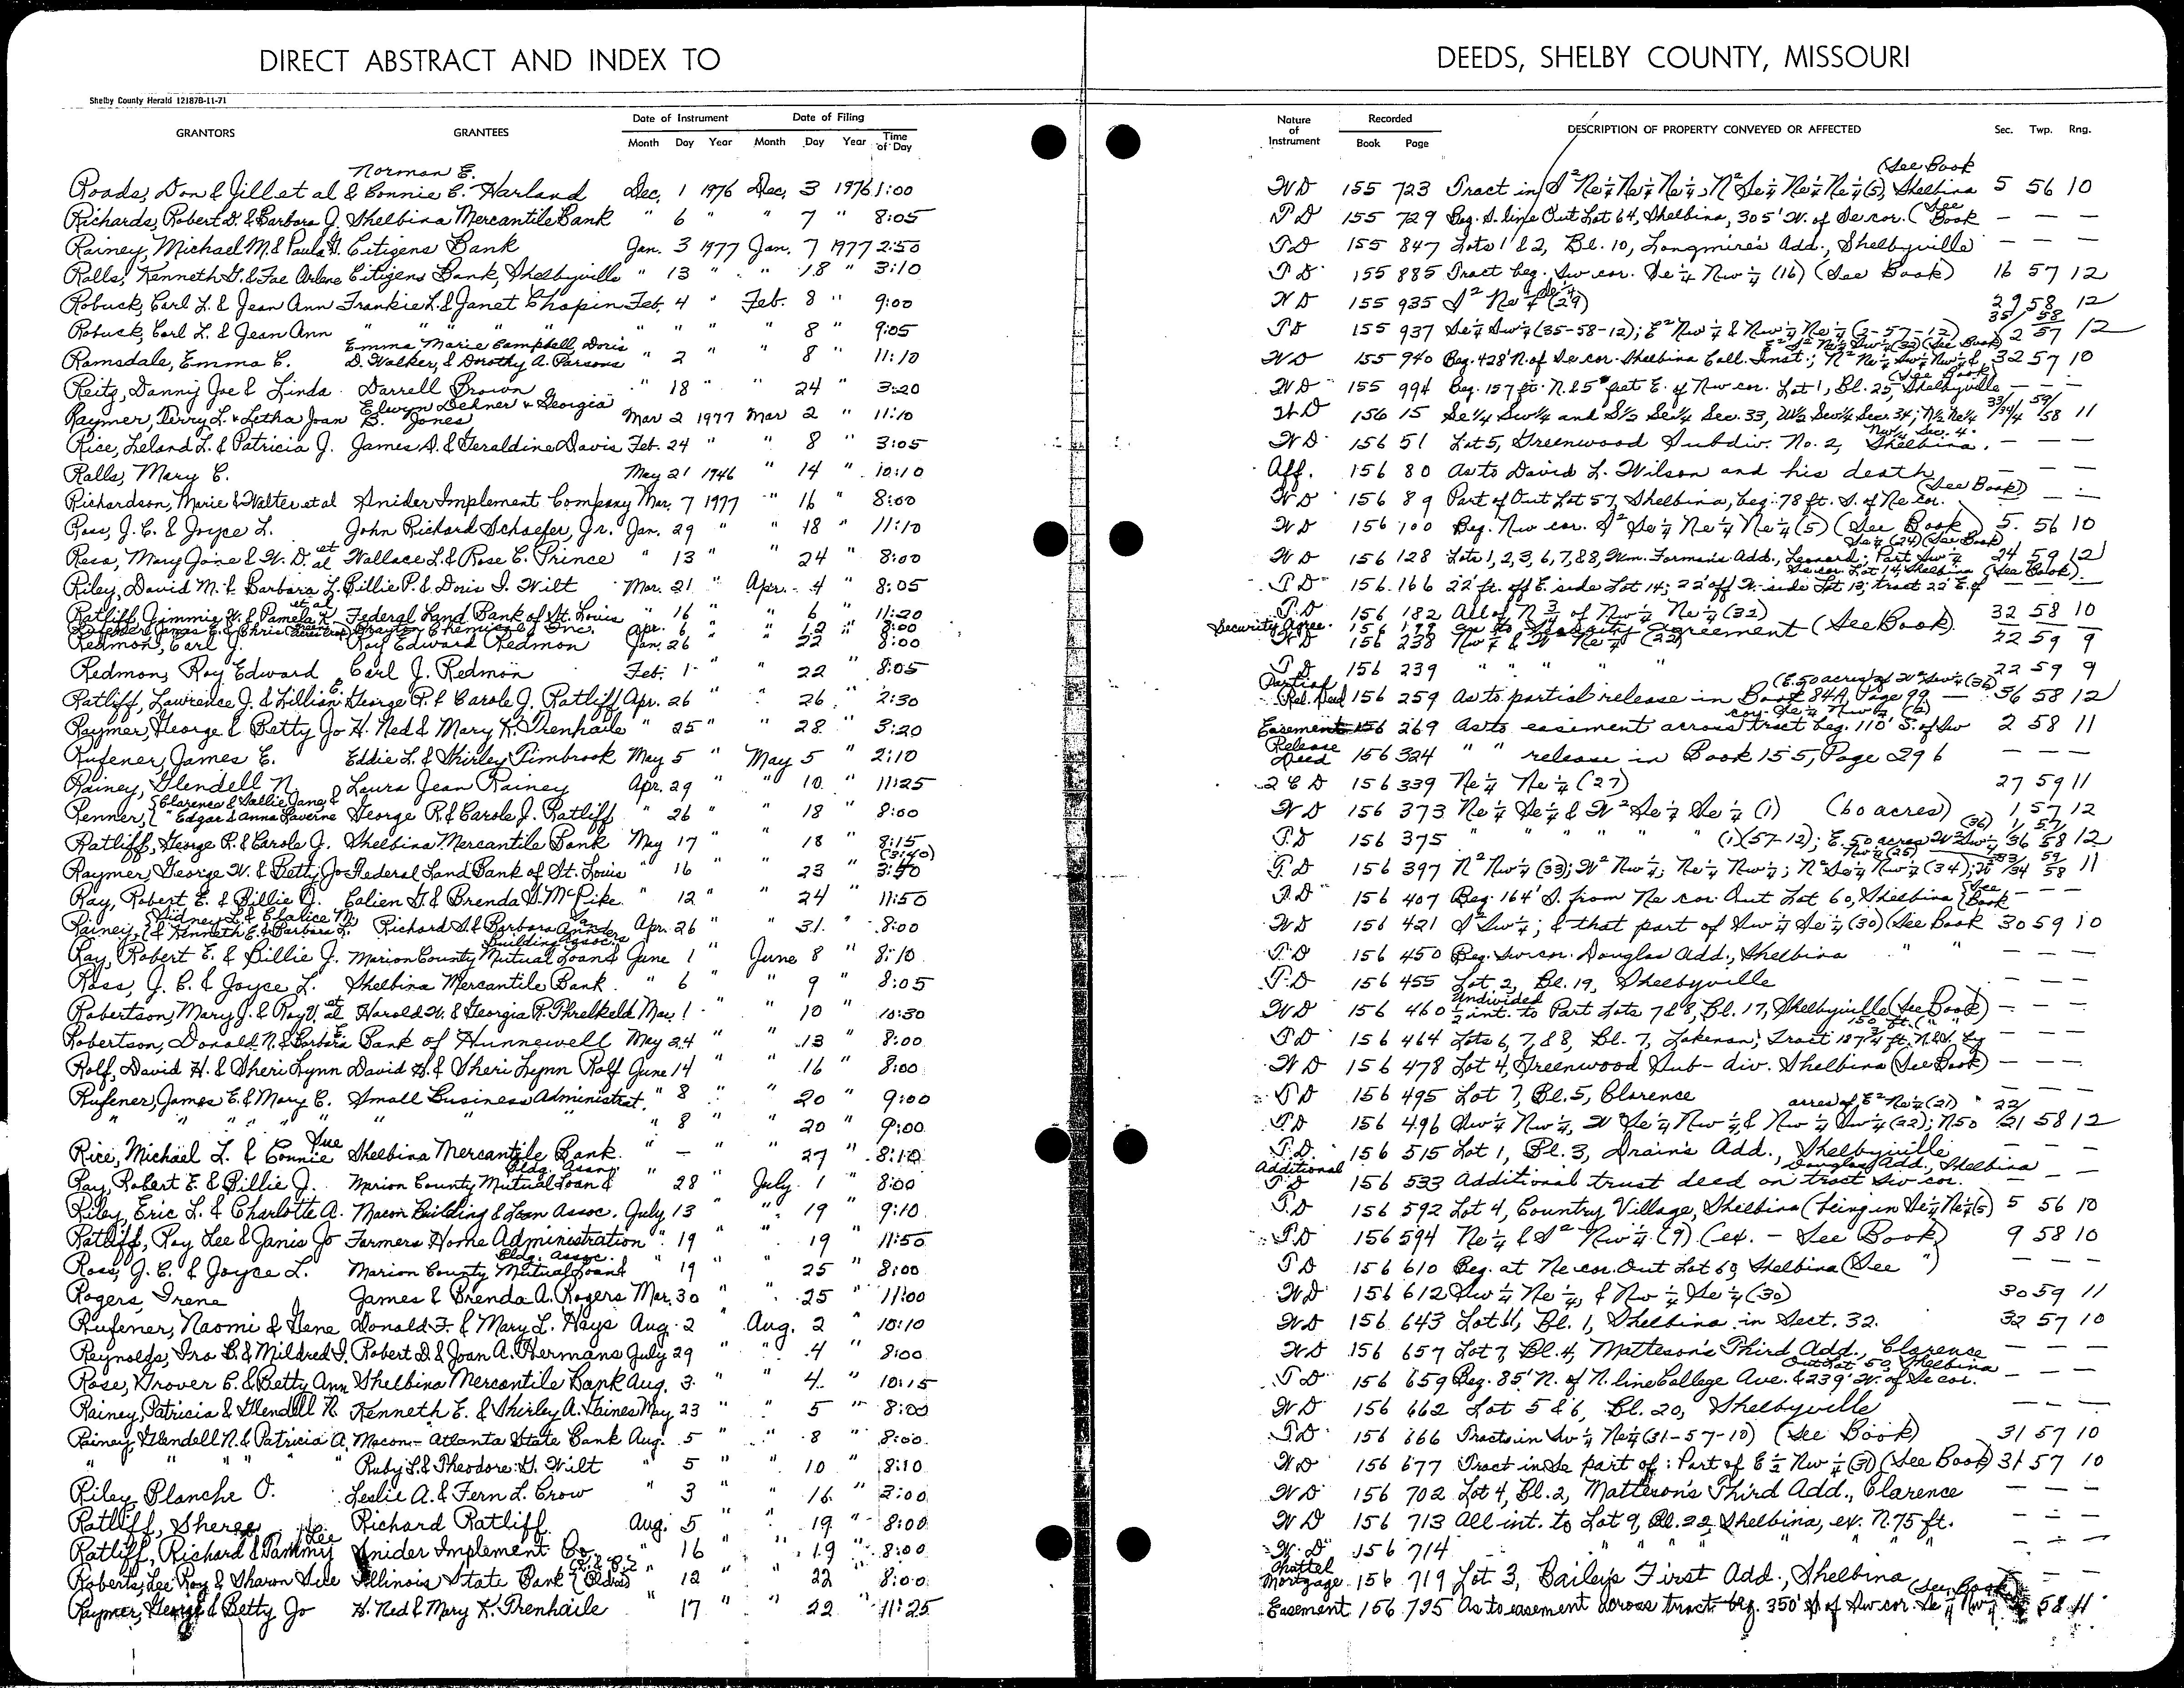 DIRECT ABSTRACT AND INDEX TO
DEEDS, SHELBY COUNTY, MISSOURI
Shelby County Herald 121878-11-71
GRANTORS GRANTEES Date of Instrument Month Day Year Date of Filing Month Day Year Time of Day Nature of Instrument Recorded Book Page DESCRIPTION OF PROPERTY CONVEYED OR AFFECTED Sec. Twp. Rng.
Norman E. (See Book
Roads, Don & Jill et al & Connie C. Harland Dec. 1 1976 Dec. 3 1976 1:00 WD 155 723 Tract in S² Ne¼ Ne¼ Ne¼, N² Se¼ Ne¼ Ne¼ (5), Shelbina 5 56 10
Richards, Robert D. & Barbara J. Shelbina Mercantile Bank " 6 " " 7 " 8:05 TD 155 729 Beg. S. line Out Lot 64, Shelbina, 305' W. of Se cor. (See Book — — —
Rainey, Michael M. & Paula Citizens Bank Jan. 3 1977 Jan. 7 1977 2:50 TD 155 847 Lots 1 & 2, Bl. 10, Longmire's Add., Shelbyville — — —
Ralls, Kenneth G. & Fae Arlene Citizens Bank, Shelbyville " 13 " " 18 " 3:10 TD 155 885 Tract beg. Sw cor. Se¼ Nw¼ (16) (See Book) 16 57 12
Robuck, Carl L. & Jean Ann Frankie L. & Janet Chapin Feb. 4 " Feb. 8 " 9:00 WD 155 935 S² Ne¼ Se¼ (29) 29 58 12
Robuck, Carl L. & Jean Ann " " " " " " " " 8 " 9:05 TD 155 937 Se¼ Sw¼ (35-58-12); E² Nw¼ & Nw¼ Ne¼ (2-57-12) 35/2 58/57 12
Emma Marie Campbell, Doris
Ramsdale, Emma C. D. Walker, & Dorothy A. Parsons " 2 " " 8 " 11:10 WD 155 940 Beg. 428' N. of Se cor. Shelbina Coll. Inst.; N² Ne¼ Sw¼ Nw¼ & S² Ne¼ Sw¼ (32) (See Book) 32 57 10
Reitz, Danny Joe & Linda Darrell Brown " 18 " " 24 " 3:20 WD 155 994 Beg. 157 ft. N. & 5 feet E. of Nw cor. Lot 1, Bl. 25, Shelbyville (See Book) — — —
Raymer, Perry L. & Letha Joan Elwyn Dehner & Georgia B. Jones Mar 2 1977 Mar 2 " 11:10 WD 156 15 Se¼ Sw¼ and S½ Se¼ Sec. 33, W½ Sw¼ Sec. 34; N½ Ne¼ Nw¼ Sec. 4. 33/34/4 59/58 11
Rice, Leland L. & Patricia J. James D. & Geraldine Davis Feb. 24 " " 8 " 3:05 WD 156 51 Lot 5, Greenwood Subdiv. No. 2, Shelbina. — — —
Ralls, Mary C. May 21 1946 " 14 " 10:10 Aff. 156 80 As to David L. Wilson and his death — — —
Richardson, Marie & Walter et al Snider Implement Company Mar. 7 1977 " 16 " 8:00 WD 156 89 Part of Out Lot 57, Shelbina, beg. 78 ft. S. of Ne cor. (See Book) — —
Ross, J. C. & Joyce L. John Richard Schaefer, Jr. Jan. 29 " " 18 " 11:10 WD 156 100 Beg. Nw cor. S² Se¼ Ne¼ Ne¼ (5) (See Book) 5 56 10
Ross, Mary Jane & W. D. et al Wallace L. & Rose C. Prince " 13 " " 24 " 8:00 WD 156 128 Lots 1, 2, 3, 6, 7, & 8, Wm. Forman's Add., Leonard; Part Sw¼ Se¼ (24) (See Book) 24 59 12
Riley, David M. & Barbara L. Billie P. & Doris I. Wilt Mar. 21 " Apr. 4 " 8:05 TD 156 166 22 ft. off E. side Lot 14; 22' off W. side Lot 13; tract 22' E. of Se cor. Lot 14, Shelbina (See Book) — —
Ratliff, Jimmie W. & Pamela K. et al Federal Land Bank of St. Louis " 16 " " 6 " 11:20 TD 156 182 All of N ¾ of Nw¼ Ne¼ (32) 32 58 10
Rufener, James E. & Chris Grayton Chemicals, Inc. Apr. 6 " " 12 " 8:00 Security Agree. 156 199 as to Security Agreement (See Book)
Redmon, Carl J. Roy Edward Redmon Jan. 26 " 22 " 8:00 WD 156 238 Nw¼ & W² Ne¼ (22) 22 59 9
Redmon, Roy Edward Carl J. Redmon Feb. 1 " " 22 " 8:05 TD 156 239 " " " " " 22 59 9
Ratliff, Lawrence J. & Lillian C. George R. & Carole J. Ratliff Apr. 26 " " 26 " 2:30 Partial Rel. Deed 156 259 As to partial release in Book 84A, Page 99 (E. 50 acres of W² Sw¼ (36) 36 58 12
Raymer, George & Betty Jo H. Ned & Mary K. Trenhaile " 25 " " 28 " 3:20 Easement 156 269 As to easement across tract beg. 110' S. of Sw cor. Se¼ Nw¼ (2) 2 58 11
Rufener, James E. Eddie L. & Shirley Timbrook May 5 " May 5 " 2:10 Release Deed 156 324 " " release in Book 155, Page 296 — — —
Rainey, Glendell N. Laura Jean Rainey Apr. 29 " " 10 " 11:25 2CD 156 339 Ne¼ Ne¼ (27) 27 59 11
Renner, {Clarence & Sallie Jane & " Edgar & Anna Laverne George R. & Carole J. Ratliff " 26 " " 18 " 8:00 WD 156 373 Ne¼ Se¼ & W² Se¼ Se¼ (1) (60 acres) 1 57 12
Ratliff, George R. & Carole J. Shelbina Mercantile Bank May 17 " 18 " 8:15 TD 156 375 " " " " " (1)(57-12); E. 50 acres W² Sw¼ (36) 1/36 57/58 12
Raymer, George W. & Betty Jo Federal Land Bank of St. Louis " 16 " 23 " (3:40) 3:50 TD 156 397 N² Nw¼ (33); W² Nw¼; Ne¼ Nw¼; N² Se¼ Nw¼ (34); Nw¼ (25) 33/34 59/58 11
Ray, Robert E. & Billie J. Calien G. & Brenda S. McPike " 12 " " 24 " 11:50 TD 156 407 Beg. 164' S. from Ne cor. Out Lot 60, Shelbina (See Book — — —
Rainey, {Sidney L. & Clalice M. & Kenneth E. & Barbara L. Richard S. & Barbara Ann Sanders Apr. 26 " " 31 " 8:00 WD 156 421 S² Sw¼; & that part of Sw¼ Se¼ (30) (See Book 30 59 10
Ray, Robert E. & Billie J. Marion County Mutual Loan & Building Assoc. June 1 " June 8 " 8:10 TD 156 450 Beg. Sw cor. Douglas Add., Shelbina " " — — —
Ross, J. C. & Joyce L. Shelbina Mercantile Bank " 6 " 9 " 8:05 TD 156 455 Lot 2, Bl. 19, Shelbyville — — —
Robertson, Mary J. & Roy V. et al Harold W. & Georgia R. Threlkeld Mar. 1 " " 10 " 10:30 WD 156 460 Undivided ½ int. to Part Lots 7 & 8, Bl. 17, Shelbyville (See Book) — — —
Robertson, Donald N. & Barbara E. Bank of Hunnewell May 24 " " 13 " 8:00 TD 156 464 Lots 6, 7, & 8, Bl. 7, Lakenan; Tract 187¼ ft. N & S. by 150 ft. (" " — — —
Rolf, David H. & Sheri Lynn David H. & Sheri Lynn Rolf June 14 " " 16 " 8:00 WD 156 478 Lot 4, Greenwood Sub-div. Shelbina (See Book) — — —
Rufener, James E. & Mary C. Small Business Administrat. " 8 " " 20 " 9:00 TD 156 495 Lot 7, Bl. 5, Clarence — — —
" " " " " " " " 8 " " 20 " 9:00 TD 156 496 Sw¼ Nw¼, W² Se¼ Nw¼ & Nw¼ Sw¼ (22); N50 acres of E² Ne¼ (21) 22/21 58 12
Rice, Michael L. & Connie Sue Shelbina Mercantile Bank " — " " 27 " 8:10 TD 156 515 Lot 1, Bl. 3, Drain's Add., Shelbyville — — —
Ray, Robert E. & Billie J. Marion County Mutual Loan & Bldg. Assoc. " 28 " July 1 " 8:00 Additional TD 156 533 Additional trust deed on tract Sw cor. Douglas Add., Shelbina — — —
Riley, Eric L. & Charlotte A. Macon Building & Loan Assoc. July 13 " " 19 " 9:10 TD 156 592 Lot 4, Country Village, Shelbina (being in Se¼ Ne¼ (5) 5 56 10
Ratliff, Roy Lee & Janis Jo Farmers Home Administration " 19 " " 19 " 11:50 TD 156 594 Ne¼ & S² Nw¼ (9) (ex. - See Book) 9 58 10
Ross, J. C. & Joyce L. Marion County Mutual Loan & Bldg. Assoc. " 19 " " 25 " 8:00 TD 156 610 Beg. at Ne cor. Out Lot 69, Shelbina (See ") — — —
Rogers, Irene James & Brenda A. Rogers Mar. 30 " " 25 " 11:00 WD 156 612 Sw¼ Ne¼, & Nw¼ Se¼ (30) 30 59 11
Rufener, Naomi & Gene Donald F. & Mary L. Hays Aug. 2 " Aug. 2 " 10:10 WD 156 643 Lot 11, Bl. 1, Shelbina in Sect. 32. 32 57 10
Reynolds, Ira B. & Mildred I. Robert D. & Joan A. Hermans July 29 " " 4 " 8:00 WD 156 657 Lot 7, Bl. 4, Matteson's Third Add., Clarence — — —
Rose, Grover C. & Betty Ann Shelbina Mercantile Bank Aug. 3 " " 4 " 10:15 TD 156 659 Beg. 85' N. of N. line College Ave. & 239' W. of Se cor. Out Lot 50, Shelbina — — —
Rainey, Patricia & Glendell N. Kenneth E. & Shirley A. Gaines May 23 " " 5 " 8:00 WD 156 662 Lot 5 & 6, Bl. 20, Shelbyville — — —
Rainey, Glendell N. & Patricia A. Macon-Atlanta State Bank Aug. 5 " " 8 " 8:00 TD 156 666 Tracts in Sw¼ Ne¼ (31-57-10) (See Book) 31 57 10
" " " " " Ruby L. & Theodore G. Wilt " 5 " " 10 " 8:10 WD 156 677 Tract in Se part of: Part of E½ Nw¼ (31) (See Book) 31 57 10
Riley, Blanche O. Leslie A. & Fern L. Crow " 3 " " 16 " 3:00 WD 156 702 Lot 4, Bl. 2, Matteson's Third Add., Clarence — — —
Ratliff, Sheree Richard Ratliff Aug. 5 " 19 " 8:00 WD 156 713 All int. to Lot 9, Bl. 22, Shelbina, ex. N. 75 ft. — — —
Ratliff, Richard & Tammy Lee Snider Implement Co. " 16 " " 19 " 8:00 W.D. 156 714 " " " " " " — — —
Roberts, Lee Roy & Sharon Sue Illinois State Bank " 12 " " 22 " 8:00 Chattel Mortgage 156 719 Lot 3, Bailey's First Add., Shelbina — —
Raymer, George & Betty Jo H. Ned & Mary K. Trenhaile " 17 " " 22 " 11:25 Easement 156 725 As to easement across tract beg. 350' S. of Sw cor. Se¼ Nw¼ (See Book) 58 11